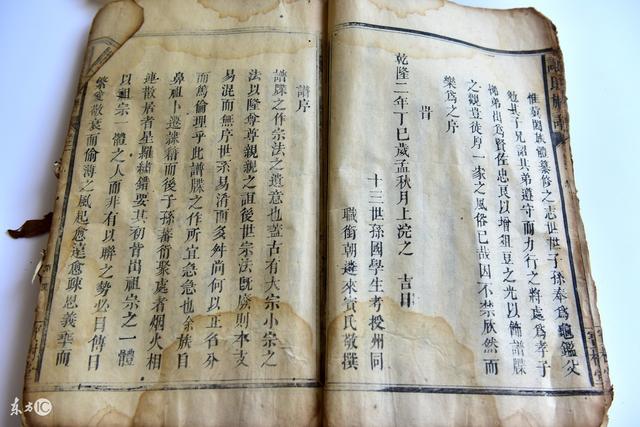 惟󠄁我閤族體纂修之志世世子孫奉為龜鑑父
勉其子兄詔其弟遵守而力行之將處為孝子
悌弟出為賢佐忠良以增俎豆之光以飾譜牒
之觀豈徒序一家之風俗已哉因不禁欣然而
樂為之序
旹
乾隆二年丁巳歲孟秋月上浣之 吉日
十三世孫國學生考授州同
職銜朝遴來賓氏敬撰
譜序
譜牒之作宗法之遺意也蓋古有大宗小宗之
法以隆尊尊親親之誼後世宗法既廢則本支
易混而無序世系易淆而多舛尚何以正名分
而篤倫理乎此譜牒之作所宜急急也余族自
鼻祖卜遷
籍而後子孫蕃衍聚處者烟火相
連散居者星羅繡錯要其初皆出祖宗之一體
以祖宗一體之人而非有以聯之勢必日傳日
繁愛敬衰而偷薄之風起愈遠愈疎恩義乖而
东方IC